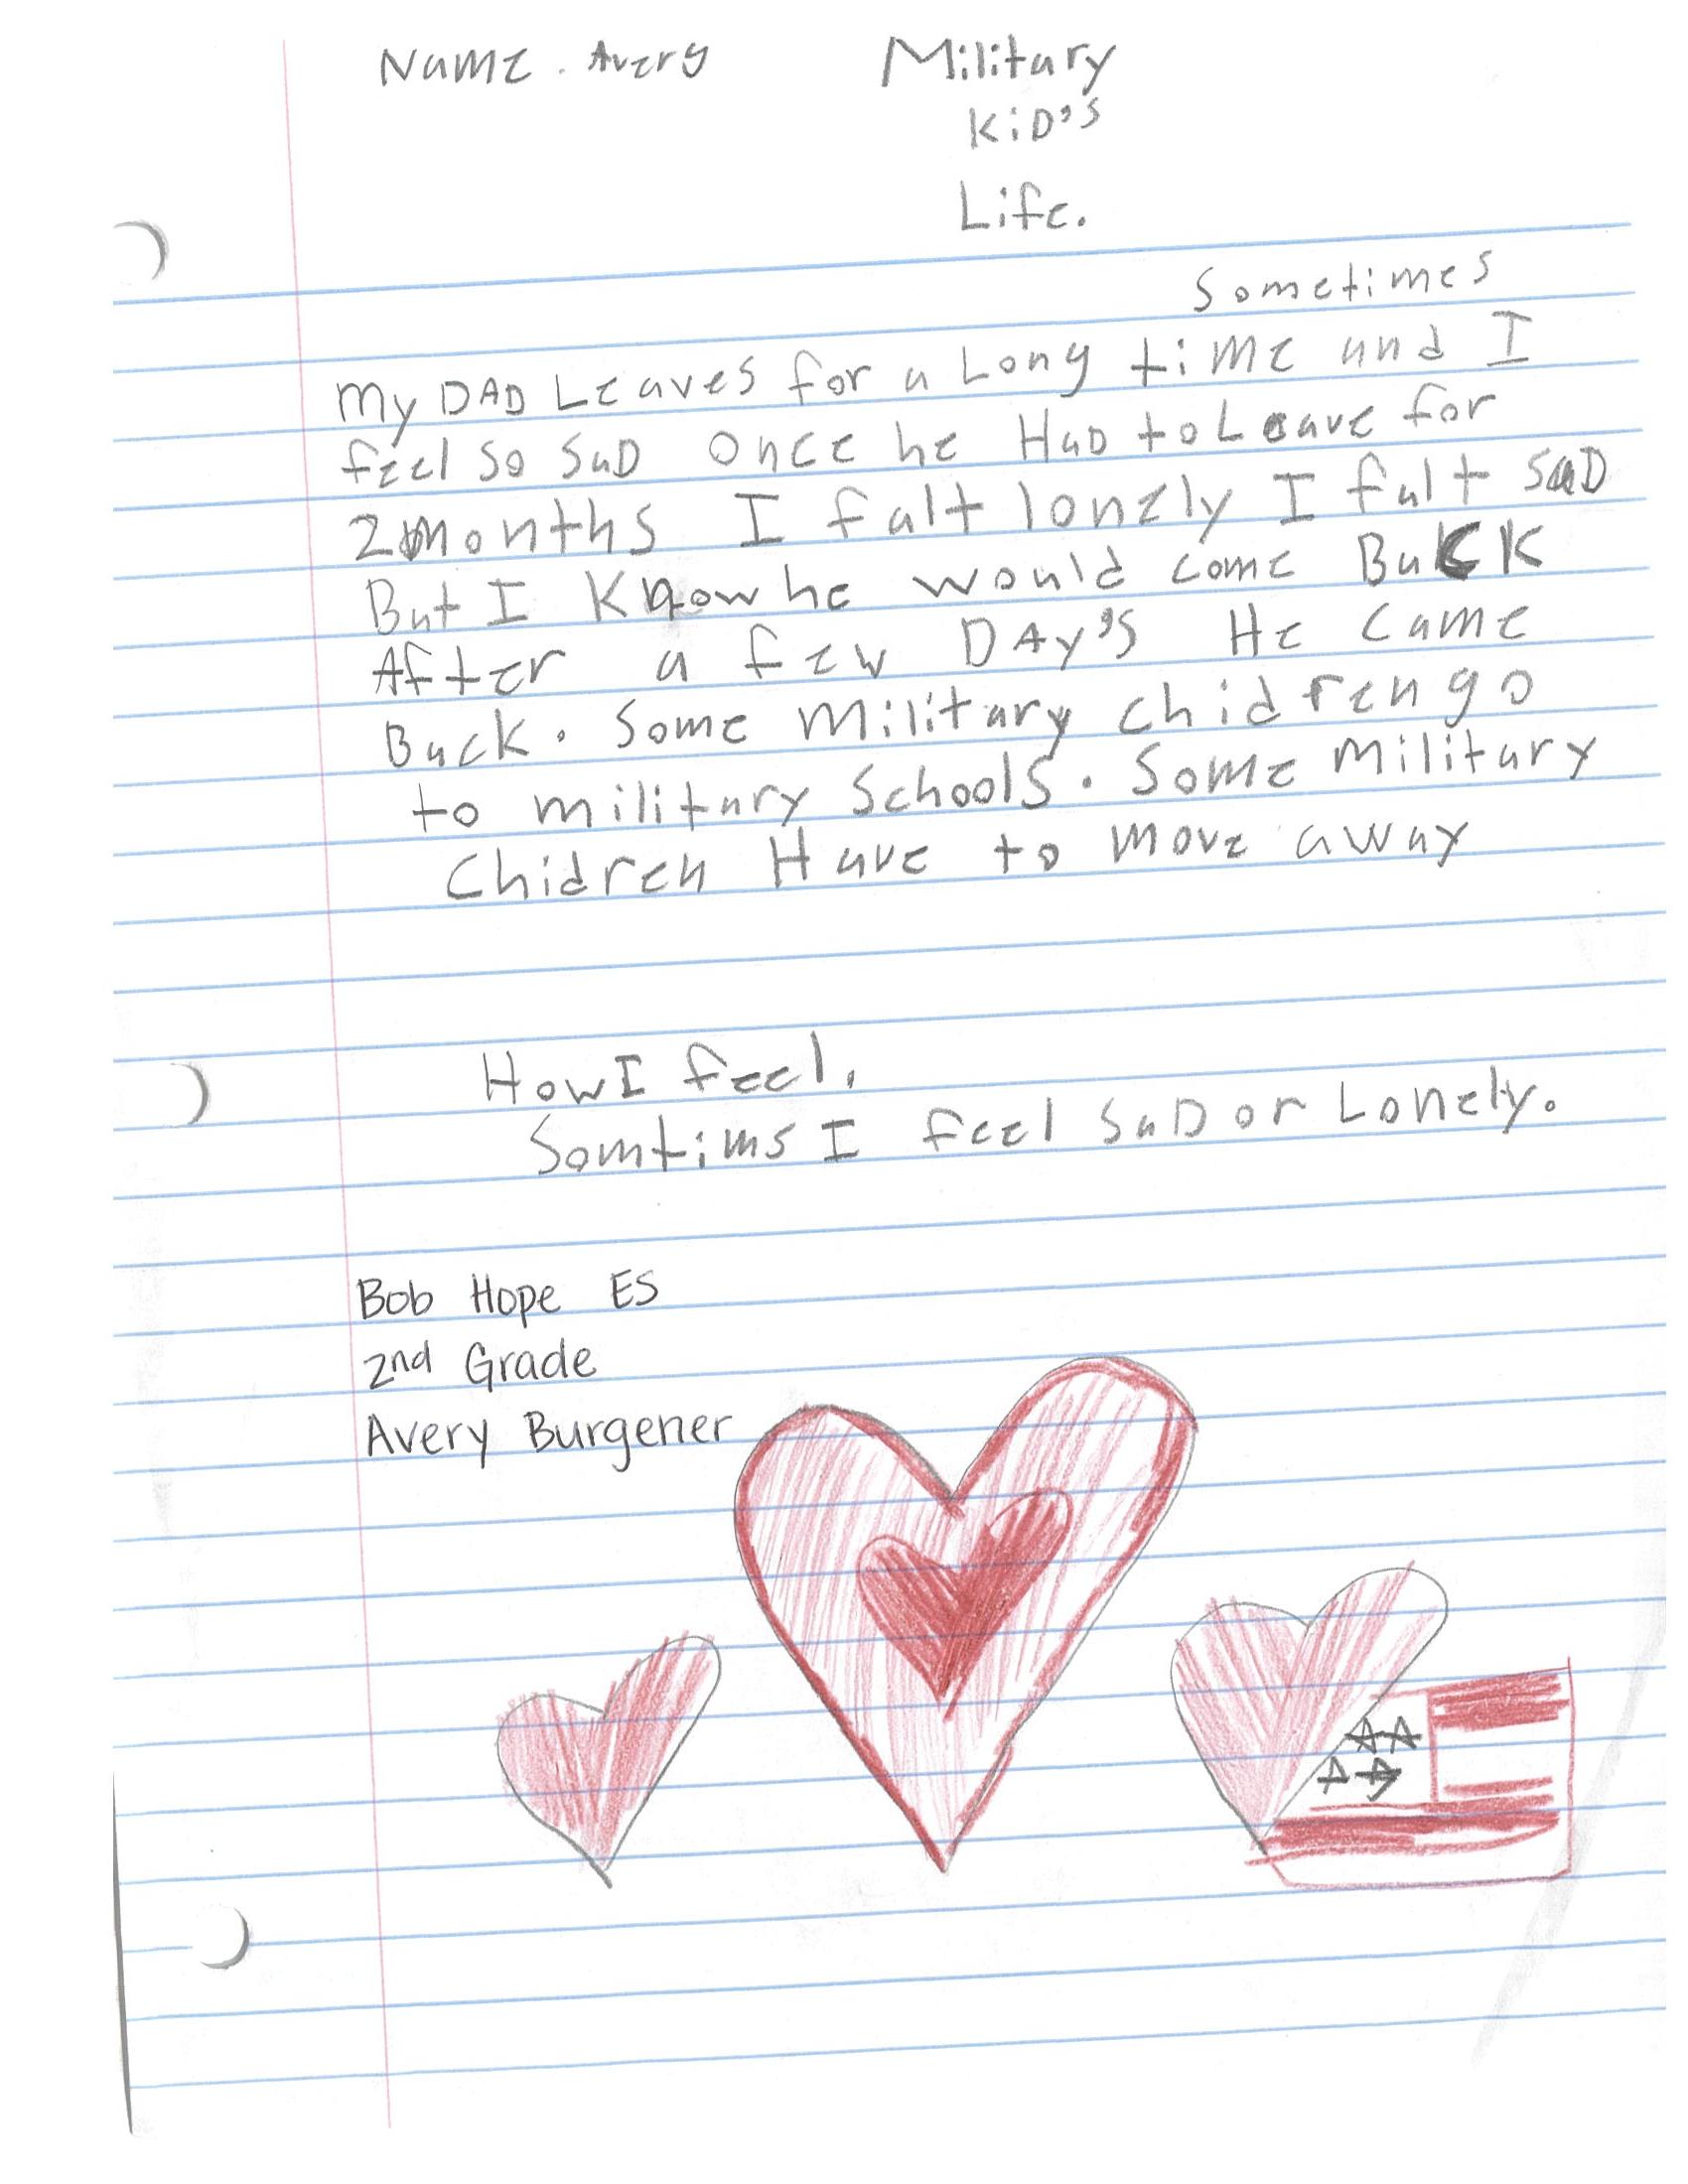 Name. Avery
Military
KiD's
Life.
Sometimes
My DAD Leaves for a Long time and I
feel so saD once he HaD to Leave for
2 months I falt lonely I falt saD
But I Know he would come BaCK
After a few DAy's He came
Back. Some military chidren go
to military Schools. Some military
Chidren Have to move away
How I feel.
Somtims I feel SaD or Lonely.
Bob Hope ES
2nd Grade
Avery Burgener